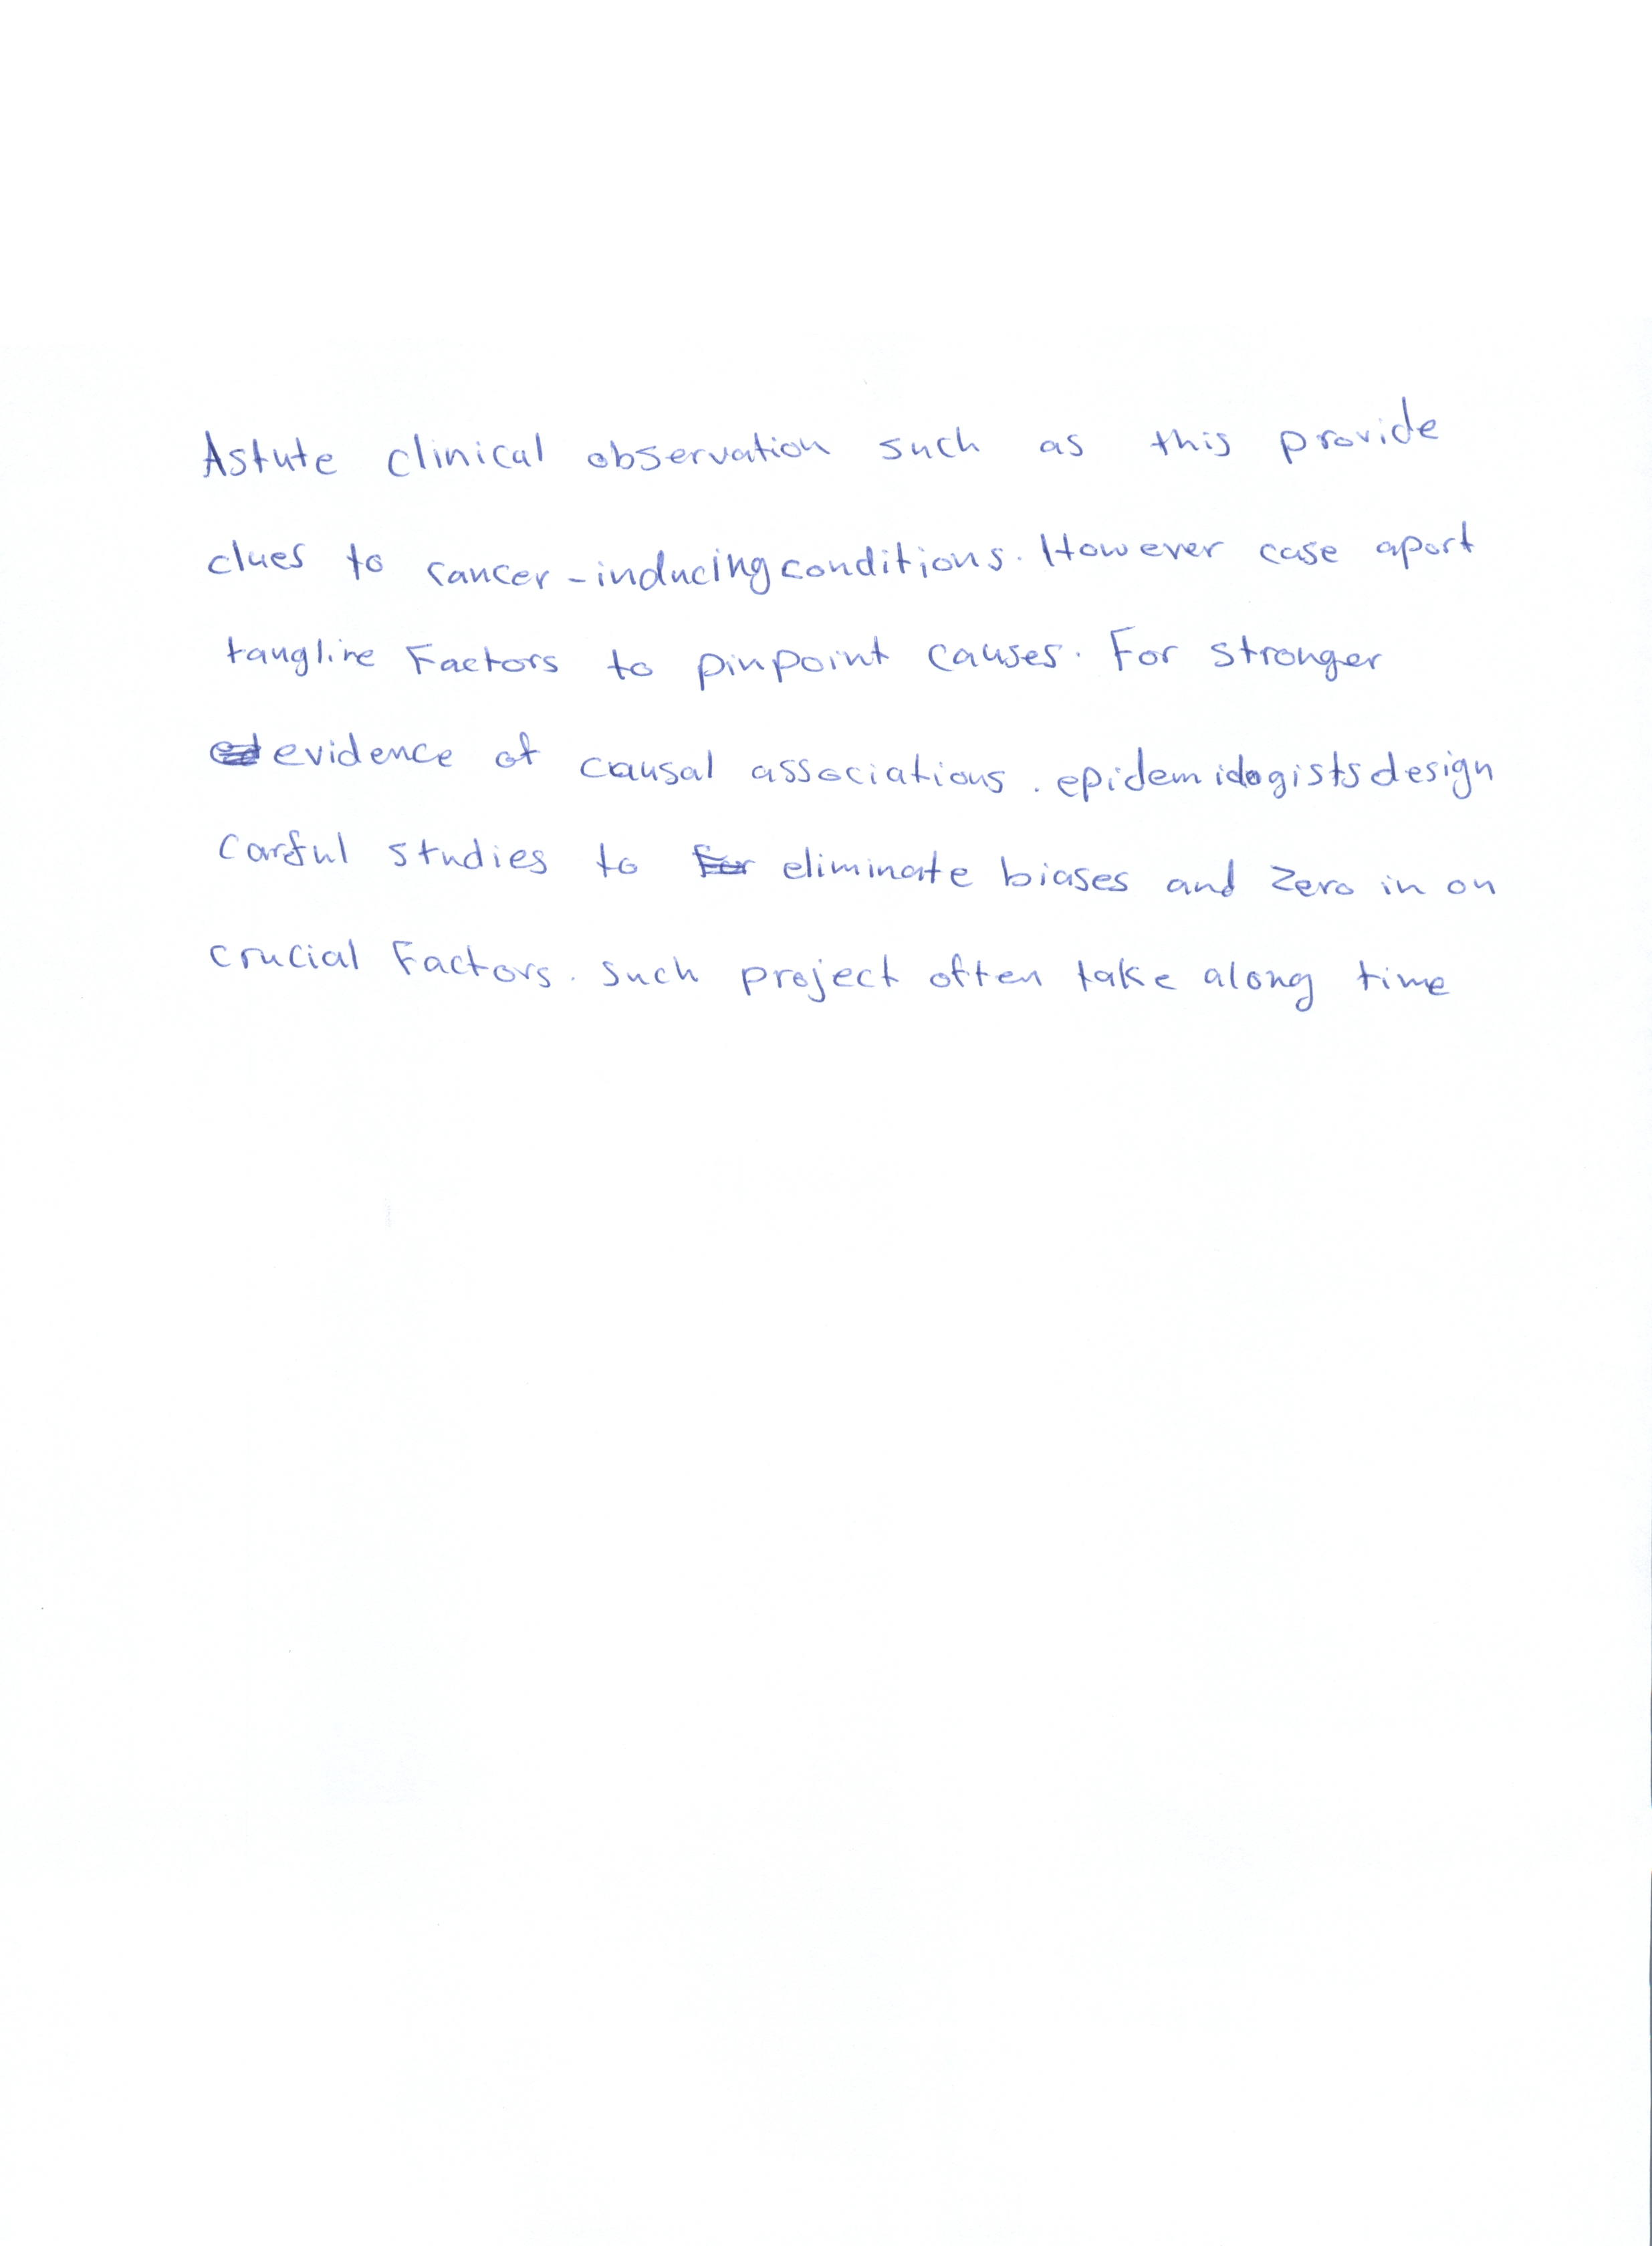 Astute clinical observation such as this provide
clues to cancer-inducing conditions. However case aport
tanglire Factors to pinpoint causes. For stronger
evidence of causal associations. epidemidogists design
Carful studies to eliminate biases and Zero in on
crucial Factors. Such project often take along time